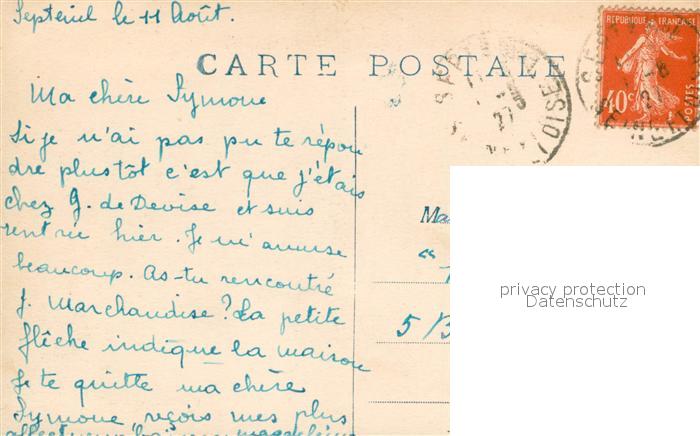 Septeuil le 11 Août.
CARTE POSTALE
REPUBLIQUE FRANÇAISE
40c
POSTES
27
OISE
Ma chère Symone
Si je n'ai pas pu te répon
dre plustôt c'est que j'étais
chez G. de Devise et suis
rentrée hier. Je m'amuse
beaucoup. As-tu rencontré
J. Marchandise? La petite
flêche indique la maison
Je te quitte ma chère
Symone reçois mes plus
affectueux
Ma
"
5/3
privacy protection
Datenschutz